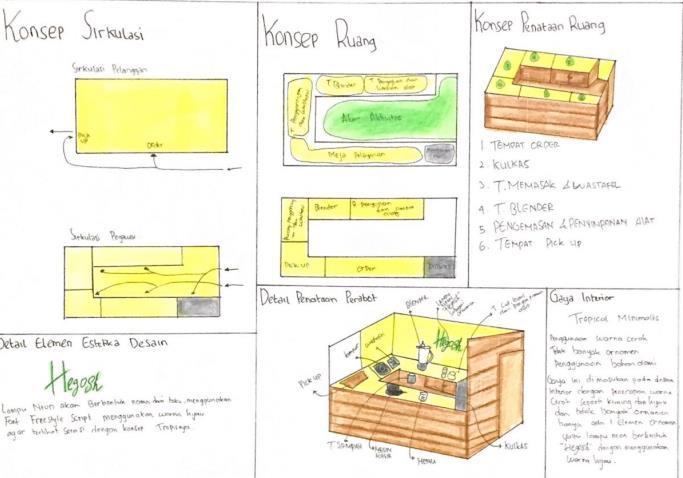 Konsep Sirkulasi
Sirkulasi Pelanggan
Pick
up
Order
Sirkulasi Pegawai
Konsep Ruang
T. Blender
Alur Aktivitas
Meja Pelayanan
Blender
Pick up
Order
Konsep Penataan Ruang
1. TEMPAT ORDER
2 KULKAS
3. T. MEMASAK & WASTAFEL
4. T BLENDER
5 PENGEMASAN & PENYIMPANAN ALAT
6. TEMPAT Pick up
Detail Elemen Estetika Desain
Hegosh
Lampu Neon akan Berbentuk nama dari toko, menggunakan
Font Freestyle Script menggunakan warna hijau
agar terlihat serasi dengan konsep Tropisnya.
Detail Penataan Perabot
BLENDER
Hegosh
kompor
wastafel
Pick up
T SAMPAH
MESIN
KASIR
MENU
KULKAS
Gaya Interior
Tropical Minimalis
Penggunaan warna cerah
Tidak banyak ornamen
Penggunaan bahan alami
Gaya ini dimasukan pada desain
interior dengan penerapan warna
cerah seperti kuning dan hijau
dan tidak banyak ornamen
hanya ada 1 Elemen ornamen
yaitu lampu neon berbentuk
"Hegosh" dengan menggunakan
warna hijau.